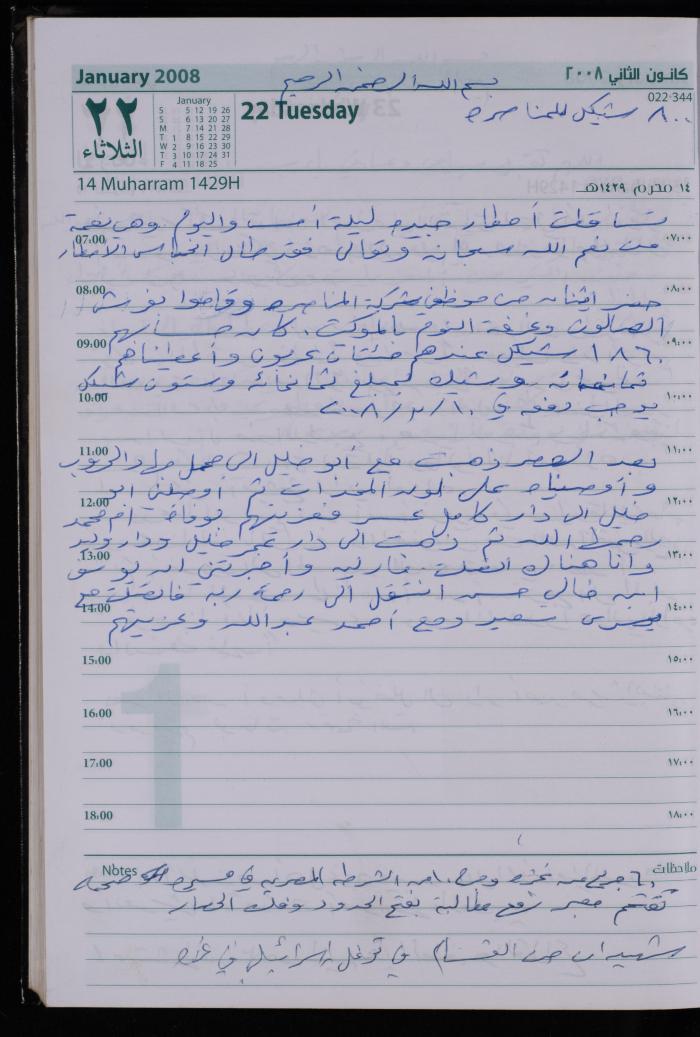 January 2008
كانون الثاني ٢٠٠٨
بسم الله الرحمن الرحيم
022-344
٢٢
الثلاثاء
January
S 5 12 19 26
S 6 13 20 27
M 7 14 21 28
T 1 8 15 22 29
W 2 9 16 23 30
T 3 10 17 24 31
F 4 11 18 25
22 Tuesday
٨٠٠ شيكل للمناصره
14 Muharram 1429H
١٤ محرم ١٤٢٩هـ
تساقطت أمطار جيده ليلة أمس واليوم وهي نعمة
07:00 من نعم الله سبحانه وتعالى فقد طال انحباس الأمطار ٠٧:٠٠
08:00 ٠٨:٠٠
حضر اثنان من موظفي شركة المناصره وقاموا بفرش
الصالون وغرفة النوم بالموكت. كان حسابهم
09:00 ٠٩:٠٠
١٨٦٠ شيكل عندهم مئتان عربون وأعطيناهم
ثمانمائه وشيك بمبلغ ثمانمائه وستون شيكل
10:00 يوجب دفعه في ٢٠٠٨/٢/١٠ ١٠:٠٠
11:00 ١١:٠٠
بعد العصر ذهبت مع أبو خليل الى محل
وأوصيناه على لون المخدات ثم أوصلني ابو
12:00 ١٢:٠٠
خليل الى دار كامل فعزيتهم بوفاة ام محمد
رحمها الله ثم ذهبت الى دار عمر خليل ودار وليد
13:00 ١٣:٠٠
وأنا هناك اتصلت وأخبرتني ان
ابن خالي حسن انتقل الى رحمة ربه فاتصلت مع
14:00 ١٤:٠٠
يسرى سعيد ومع أحمد عبدالله وعزيتهم
15:00 ١٥:٠٠
16:00 ١٦:٠٠
1
17:00 ١٧:٠٠
18:00 ١٨:٠٠
Notes ملاحظات
٦٠ جريح من غزه من الشرطه المصريه في مسيره
تقتحم معبر رفح مطالبة بفتح الحدود وفك الحصار
شهيدان من القسام في توغل اسرائيلي في غزه